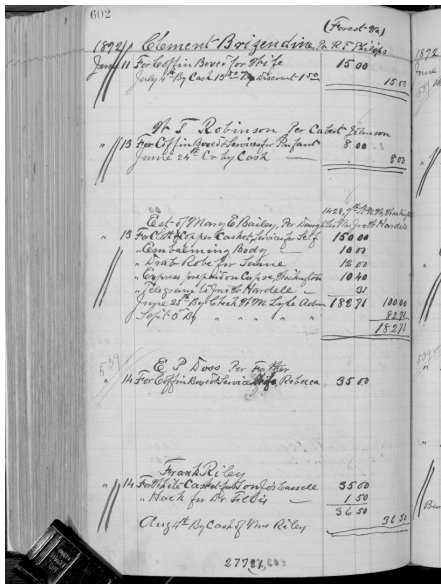 602
(Forest Va)
1892 Clement Brizendine, Per R T Phelps
June 11 For Coffin Box &c for Wife 15 00
July 4th By Cash 13 50 Discount 1 50 15 00
W T Robinson Per Cabest Johnson
" 13 For Coffin Box & Services for Infant 8 00
June 24th Cr by Cash 8 00
1428, 9th St N W
Est of Mary E Bailey, Per Daughter Mrs Jno W Hardell
" 13 For Cloth Cop per Casket, Services for Self 150 00
" Embalming Body 10 00
" Drab Robe for Same 12 00
" Express prepaid on Corpse, Washington 10 40
" Telegram to Jno W. Hardell 31
June 25th By Check W M Lyle Adm 182 71 100 00
Sept 5th By " " " " 82 71
182 71
539
E P Doss Per Father
" 14 For Coffin Box & Services Wife, Rebecca 35 00
Frank Riley
" 14 For White Casket for Son Jos Cassell 35 00
" Hack for Dr 1 50
36 50
Aug 4th By Cash of Mrs Riley 36 50